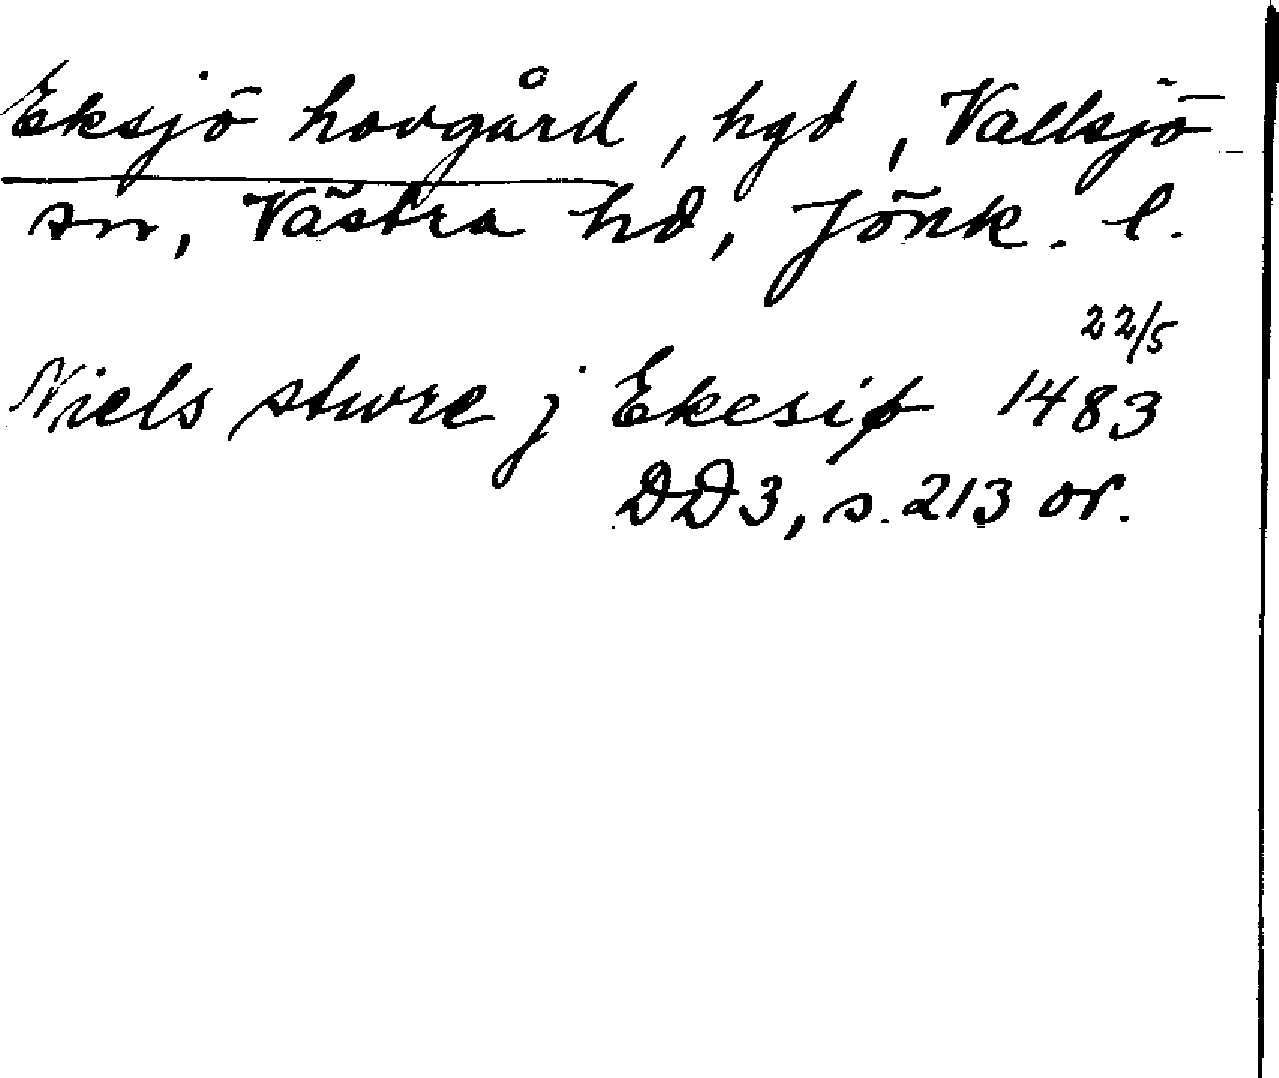 Eksjö hovgård, hgd, Vallsjö
sn, Västra hd, Jönk. l.
22/5
Niels stwre j Ekesiø 1483
DD3, s. 213 or.